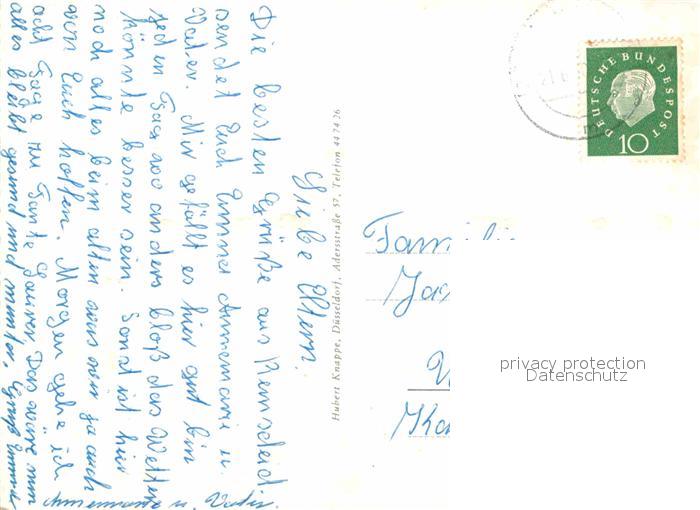 Liebe Eltern.
Die besten Grüße aus Remscheid
sendet Euch Emma Annemarie u.
Vater. Mir gefällt es hier gut bin
jeden Tag wo anders bloß das Wetter
könnte besser sein. Sonst ist hier
noch alles beim alten was wir ja auch
von Euch hoffen. Morgen gehe ich
acht Tage zu Tante Das wäre nun
alles bleibt gesund und munter. Gruß
Annemarie u. Vater.
Hubert Knappe, Düsseldorf, Adersstraße 57, Telefon 44 74 26
DEUTSCHE BUNDESPOST
10
privacy protection
Datenschutz